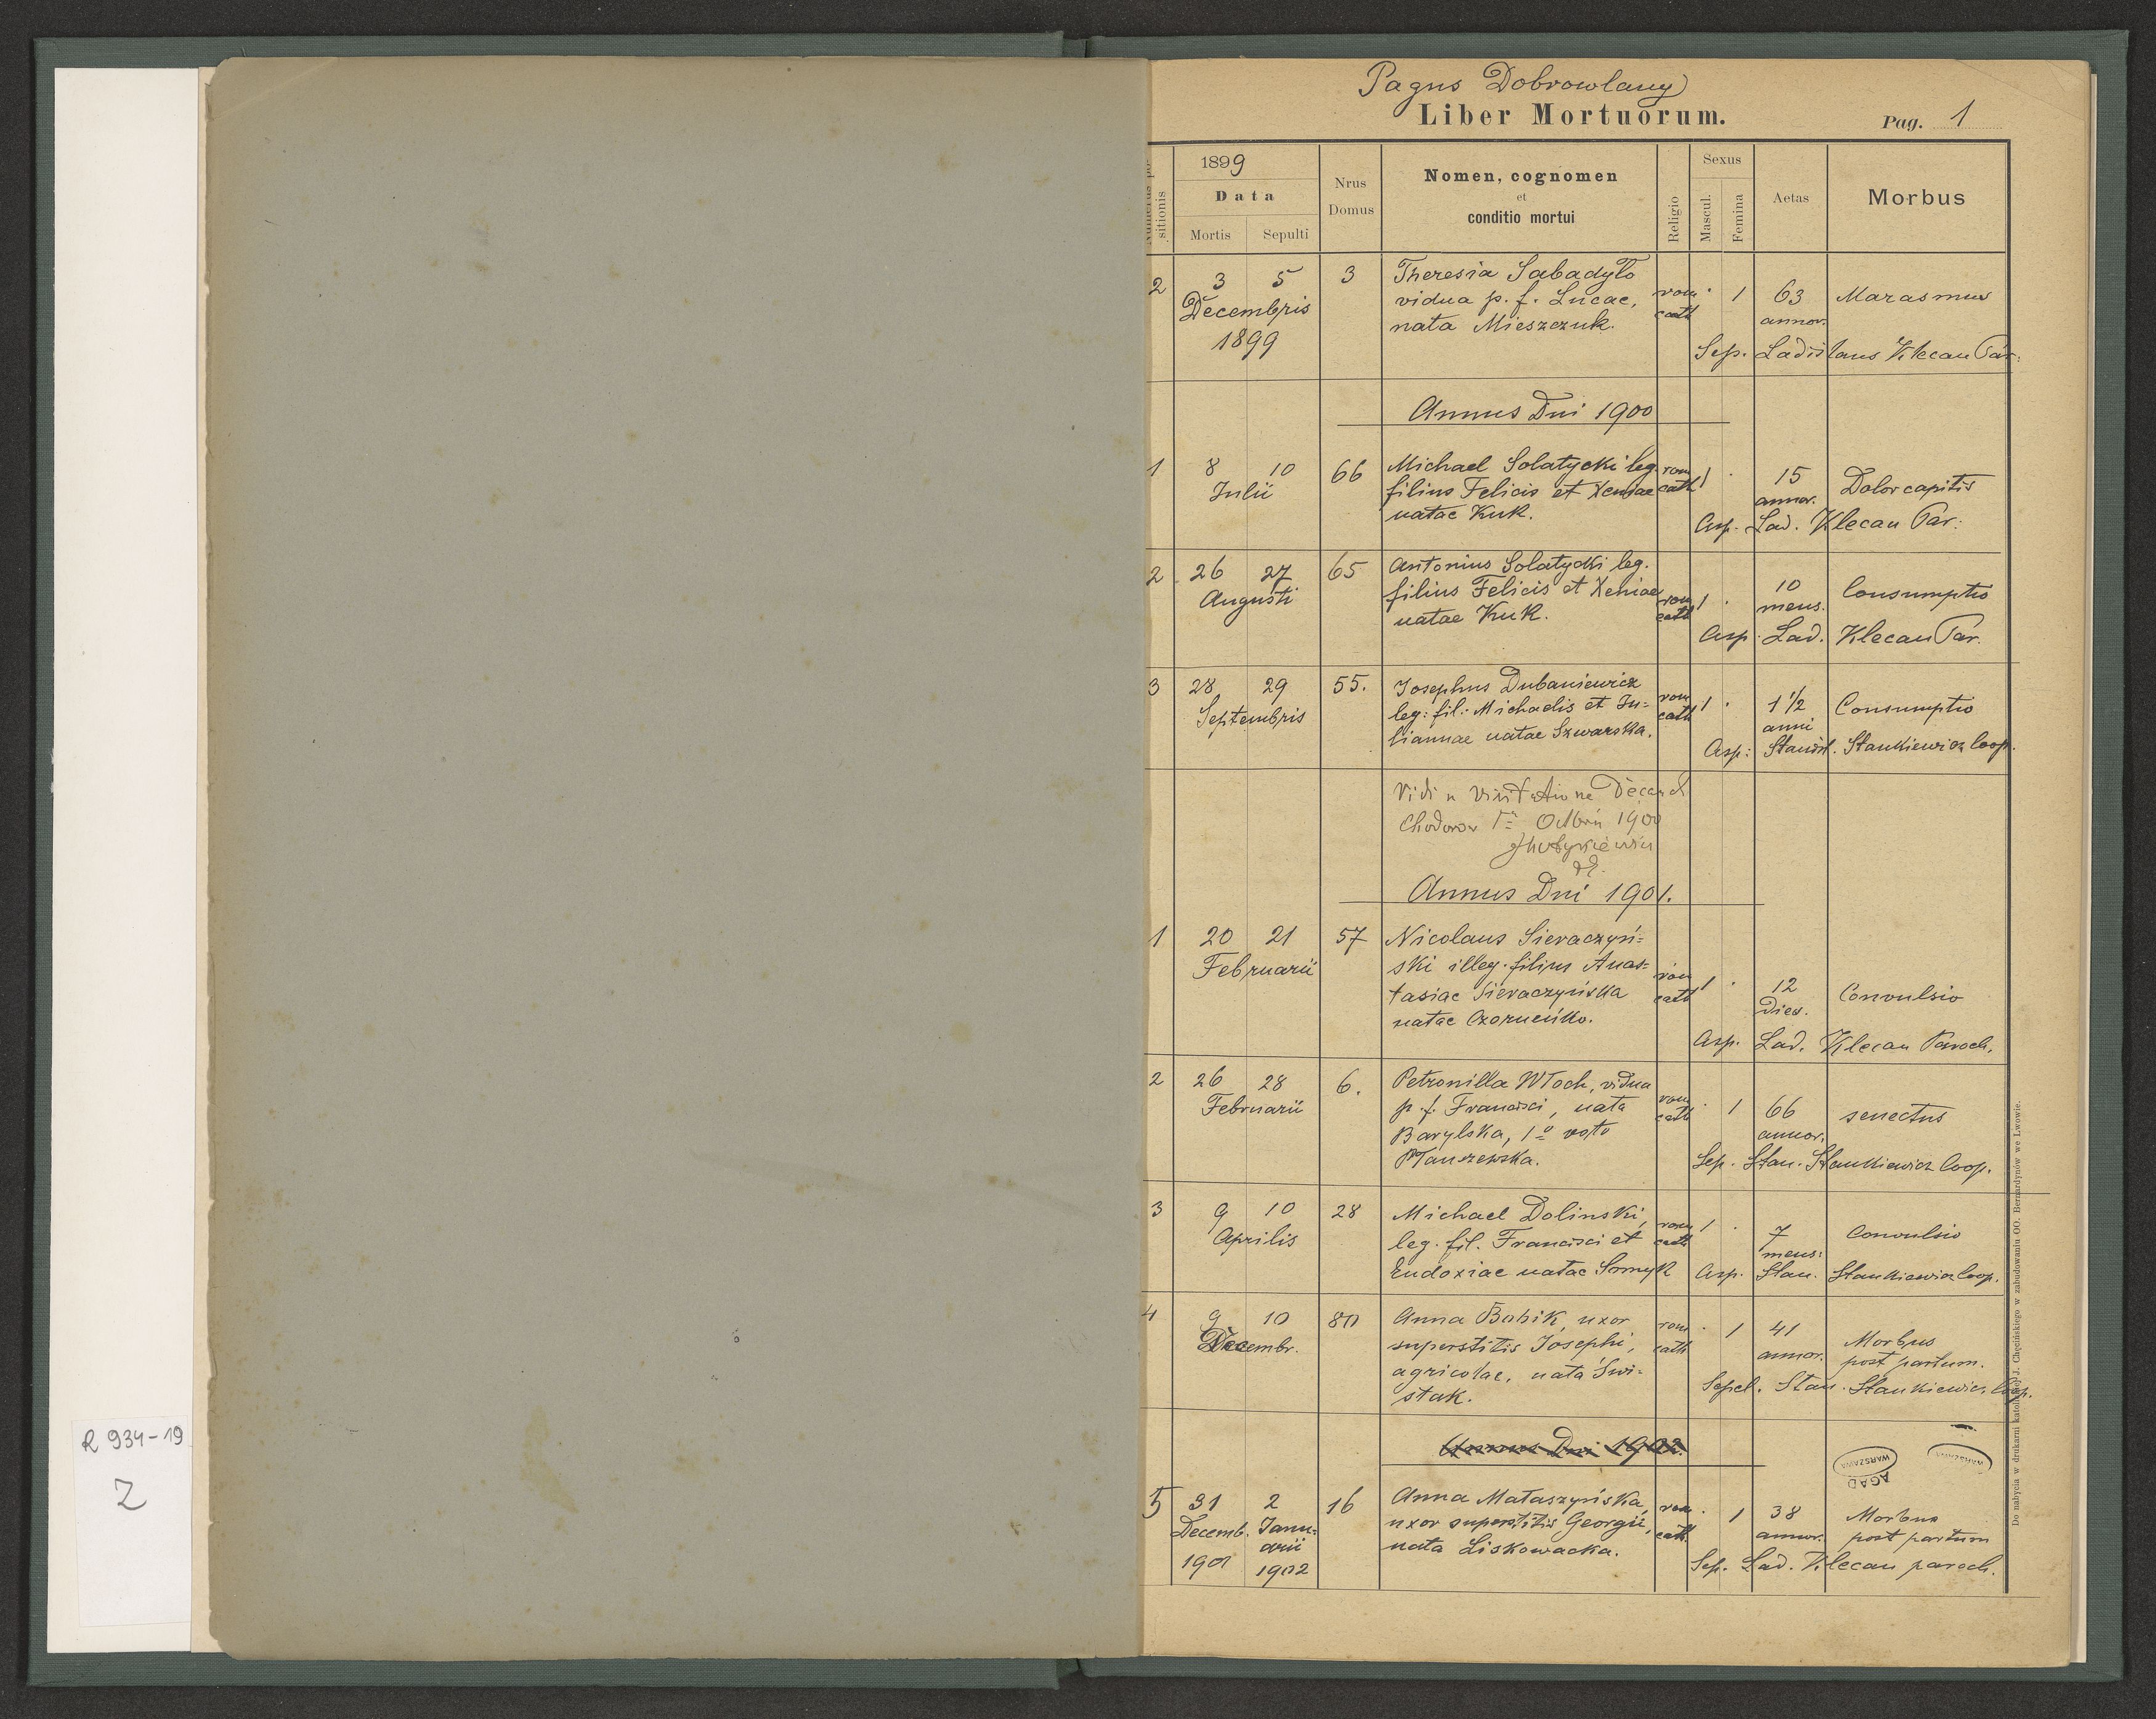 Pagus Dobrowlany
Liber Mortuorum.
Pag. 1
sitionis
1899
Data
Mortis Sepulti
Nrus Domus
Nomen, cognomen
et
conditio mortui
Religio
Sexus
Mascul. Femina
Aetas
Morbus
2 3 5 3 Theresia Sabadyło
Decembris vidua p. f. Lucae, rom · 1 63 Marasmus
1899 nata Mieszczuk. cath annor.
Sep. Ladislaus Klecan Par:
Annus Dni 1900
1 8 10 66 Michael Solatycki leg. rom 1 · 15 Dolor capitis
Julii filius Felicis et Xeniae cath annor.
natae Kuk.
Asp. Lad. Klecan Par:
2 26 27 65 Antonius Solatycki leg.
Augusti filius Felicis et Xeniae rom 1 · 10 Consumptio
natae Kuk. cath mens.
Asp. Lad. Klecan Par.
3 28 29 55. Josephus Dubaniewicz rom 1 · 1 1/2 Consumptio
Septembris leg: fil: Michaelis et Ju= cath anni
liannae natae Szwarska.
Asp: Stanisł. Stankiewicz Coop.
Vidi Visitatione Decan
Chodorov 1900
Annus Dni 1901.
1 20 21 57 Nicolaus Sieraczyń=
Februarii ski illeg. filius Anas= rom 1 · 12 Convulsio
tasiae Sieraczyńska cath Dies.
natae Czorneńko.
Asp. Lad. Klecan Paroch.
2 26 28 6. Petronilla Włoch, vidua rom · 1 66 senectus
Februarii p. f. Francisci, nata cath annor.
Barylska, 1º voto
Sep. Stan. Stankiewicz Coop.
3 9 10 28 Michael Dolinski, rom 1 · 7 Convulsio
Aprilis leg. fil. Francisci et cath mens:
Eudoxiae natae Smyk Asp. Stan. Stankiewicz Coop.
4 9 10 80 Anna Babik, uxor rom · 1 41 Morbus
Decembr. superstitis Josephi, cath annor. post partum.
agricolae, nata Świ=
stak.
Sepel. Stan. Stankiewicz Coop.
Annus Dni 1902.
WARSZAWA
AGAD
WARSZAWA
5 31 2 16 Anna Mataszyńska, rom · 1 38 Morbus
Decemb. Janu= uxor superstitis Georgii, cath. annor. post partum
arii nata Liskowacka.
1901 1902
Sep. Lad. Klecan paroch.
Do nabycia w drukarni katolickiej J. Chęcińskiego w zabudowaniu OO. Bernardynów we Lwowie.
R 934-19
Z